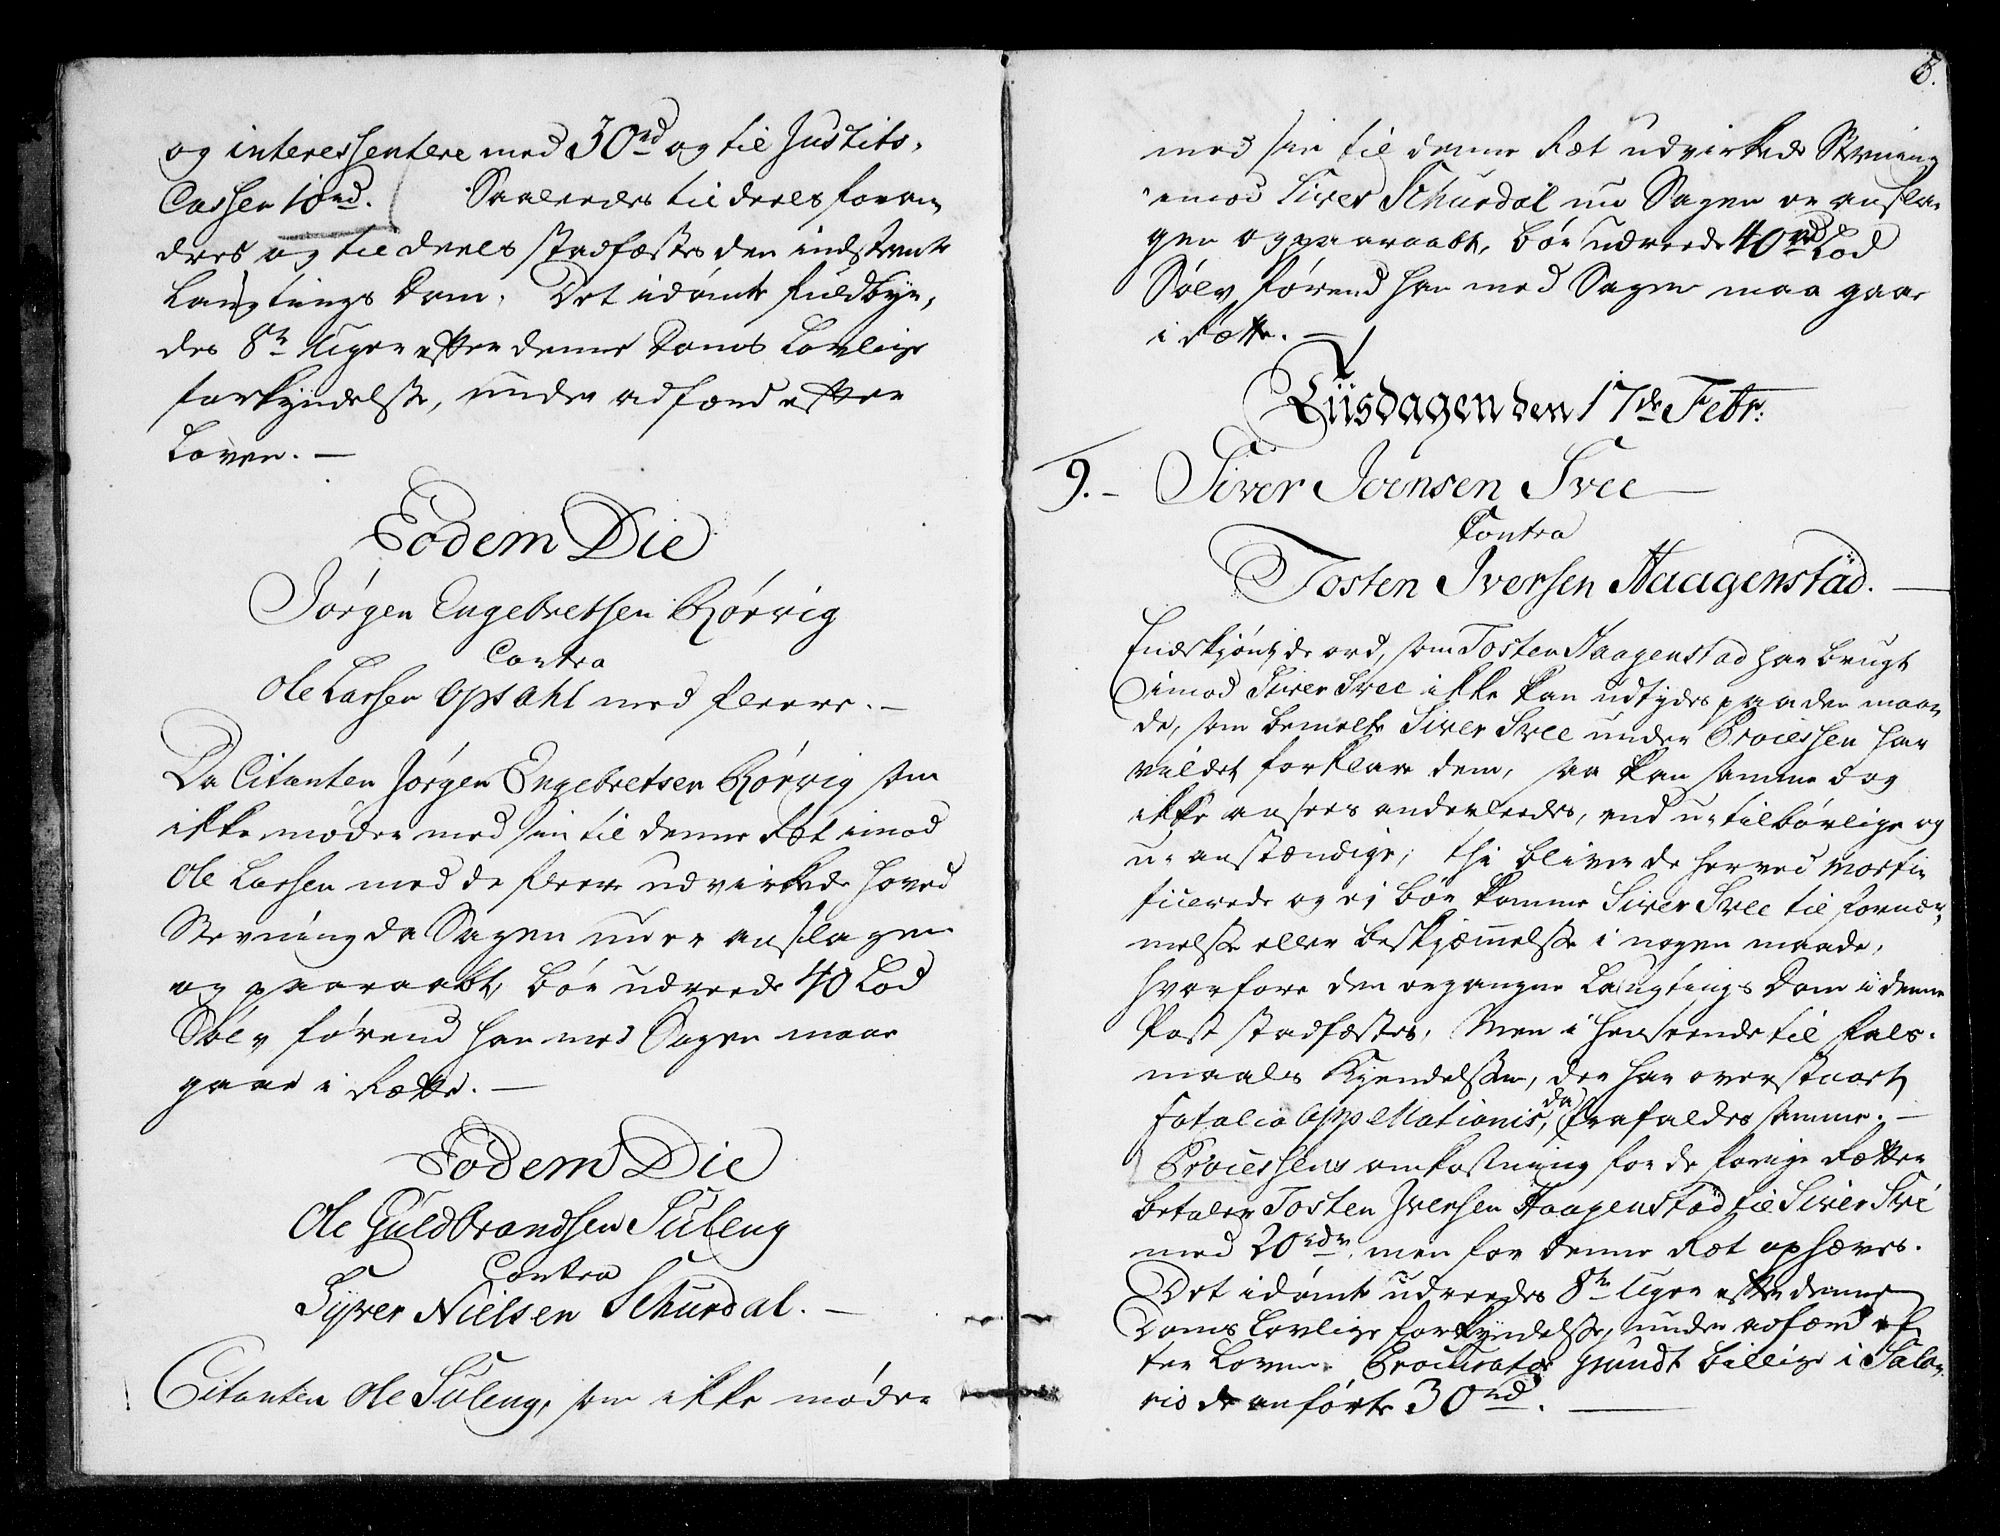 og interessentere med 30rd og til Justits-
Cassen 10rd. Saaledes til deels foran
dres og til deels stadfæstes den indstevnte
Laugtings Dom. Det idømte fuldbyr-
des 8te Uger efter denne Doms Lovlige
forkyndelse, under adfærd efter
Loven. —
Eodem Die
Jørgen Engebretsen Rørvig
Contra
Ole Larsen Opsahl med fleere. —
Da Citanten Jørgen Engebretsen Rørvig som
ikke møder med sin til denne Ret imod
Ole Larsen med de fleere udvirkede Hoved
Stevning da Sagen nu er anslagen
og paaraabt, bør udreede 40 Lod
Sølv førend han med Sagen maae
gaae i Rette. —
Eodem Die
Ole Guldbrandsen Suleng
Contra
Syver Nielsen Schurdal. —
Citanten Ole Suleng, som ikke møder
8.
med sin til denne Ret udvirkede Stevning
imod Siver Schurdal nu Sagen er ansla-
gen og paaraabt, bør udreede 40 Lod
Sølv, førend han med Sagen maa gaae
i Rette. —
Tiisdagen den 17de Febr:
9. — Siver Joensen Svee
Contra
Tosten Iversen Haagenstad. —
Endskjønt de ord, som Tosten Haagenstad har brugt
imod Siver Svee ikke kan udtydes paa den maa-
de, som bemelte Siver Svee under Processen har
vildet forklare dem, saa kan samme dog
ikke ansees anderleedes, end u-tilbørlige og
u-anstændige; thi blive de herved morti-
ficerede og ej bør komme Siver Svee til fornær-
melse eller beskjæmmelse i nogen maade,
hvorfore den ergangne Laugtings Dom i denne
Post stadfæstes, Men i henseende til fals-
maals Kjendelsen, der har oversteaet
Fatalia Appellationis, da frafaldes samme. —
Processens omkostning for de forrige Retter
betaler Tosten Iversen Haagenstad til Siver Sve
med 20rdr. men for denne Ret ophæves.
Det idømte udreedes 8te Uger efter denne
Doms Lovlige forkyndelse, under adfærd ef-
ter Loven. Procurator Grundt billiges i Sala-
rio de anførte 30rd. —